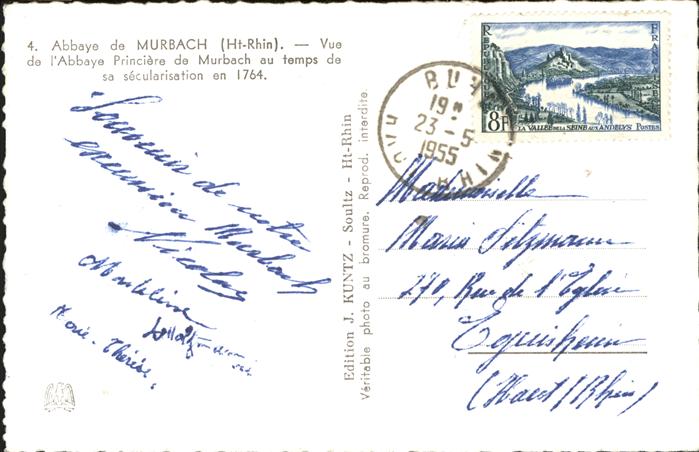 4. Abbaye de MURBACH (Ht-Rhin). — Vue
de l'Abbaye Princière de Murbach au temps de
sa sécularisation en 1764.
Souvenir de notre
excursion Murbach
Nicolas
Madeleine
Marie-Thérèse
Edition J. KUNTZ - Soultz - Ht-Rhin
Véritable photo au bromure. Reprod. interdite
BU
19
23-5
1955
HAUT RHIN
REPUBLIQUE FRANÇAISE
8F
LA VALLÉE DE LA SEINE AUX ANDELYS POSTES
Mademoiselle
Maria Sitzmann
270, Rue de l'Eglise
Eguisheim
(Haut/Rhin)